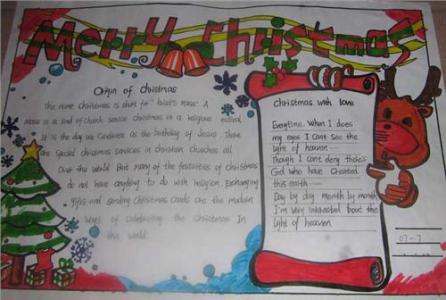 Merry Christmas
Origin of Christmas
The name christmas is short for "Christ's mass". A
Mass is a kind of Church service. Christmas is a religious
It is the day we Celebrate as the birthday of Jesus. There
are special christmas services in christian Churches all
Over the world. But many of the festivities of christmas
do not have anything to do with religion. Exchanging
gifts and sending Christmas cards are the modern
Ways of celebrating the Christmas In
the world.
Christmas with love
Everytime. When I does
my eyes I can't see the
light of heaven
Though I cant deny
God who have Created
this earth
Day by day month by month
I'm very interested bout the
light of heaven
07-7